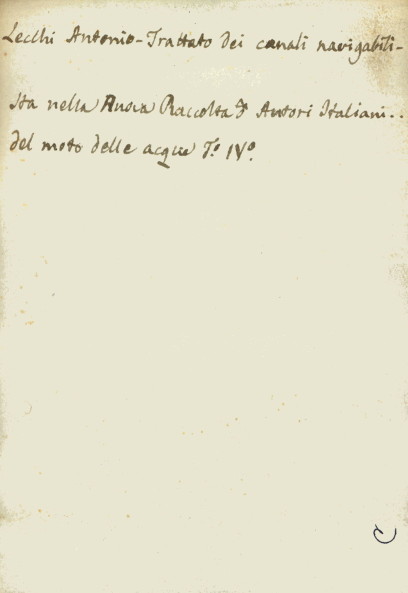 Lecchi Antonio - Trattato dei canali navigabili -
Sta nella Nuova Raccolta d'Autori Italiani..
del moto delle acque T.º IV.º